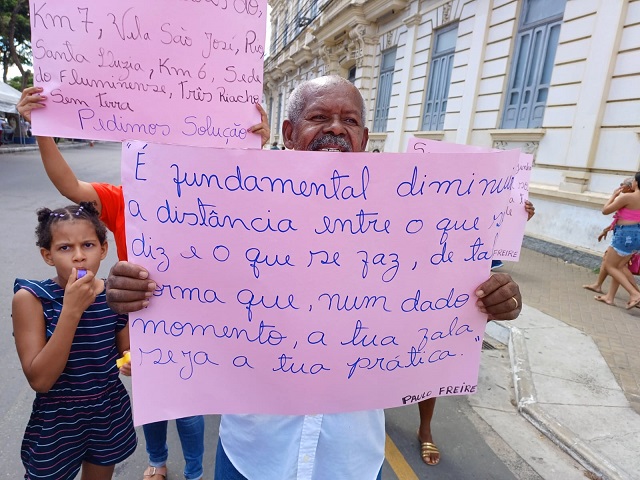 Km 7, Vila São José, Rio
Santa Luzia, Km 6, Sede
do Fluminense, Três Riacho
Sem Terra
Pedimos Solução
"É fundamental diminuir
a distância entre o que se
diz e o que se faz, de tal
forma que, num dado
momento, a tua fala
seja a tua prática."
PAULO FREIRE
FREIRE